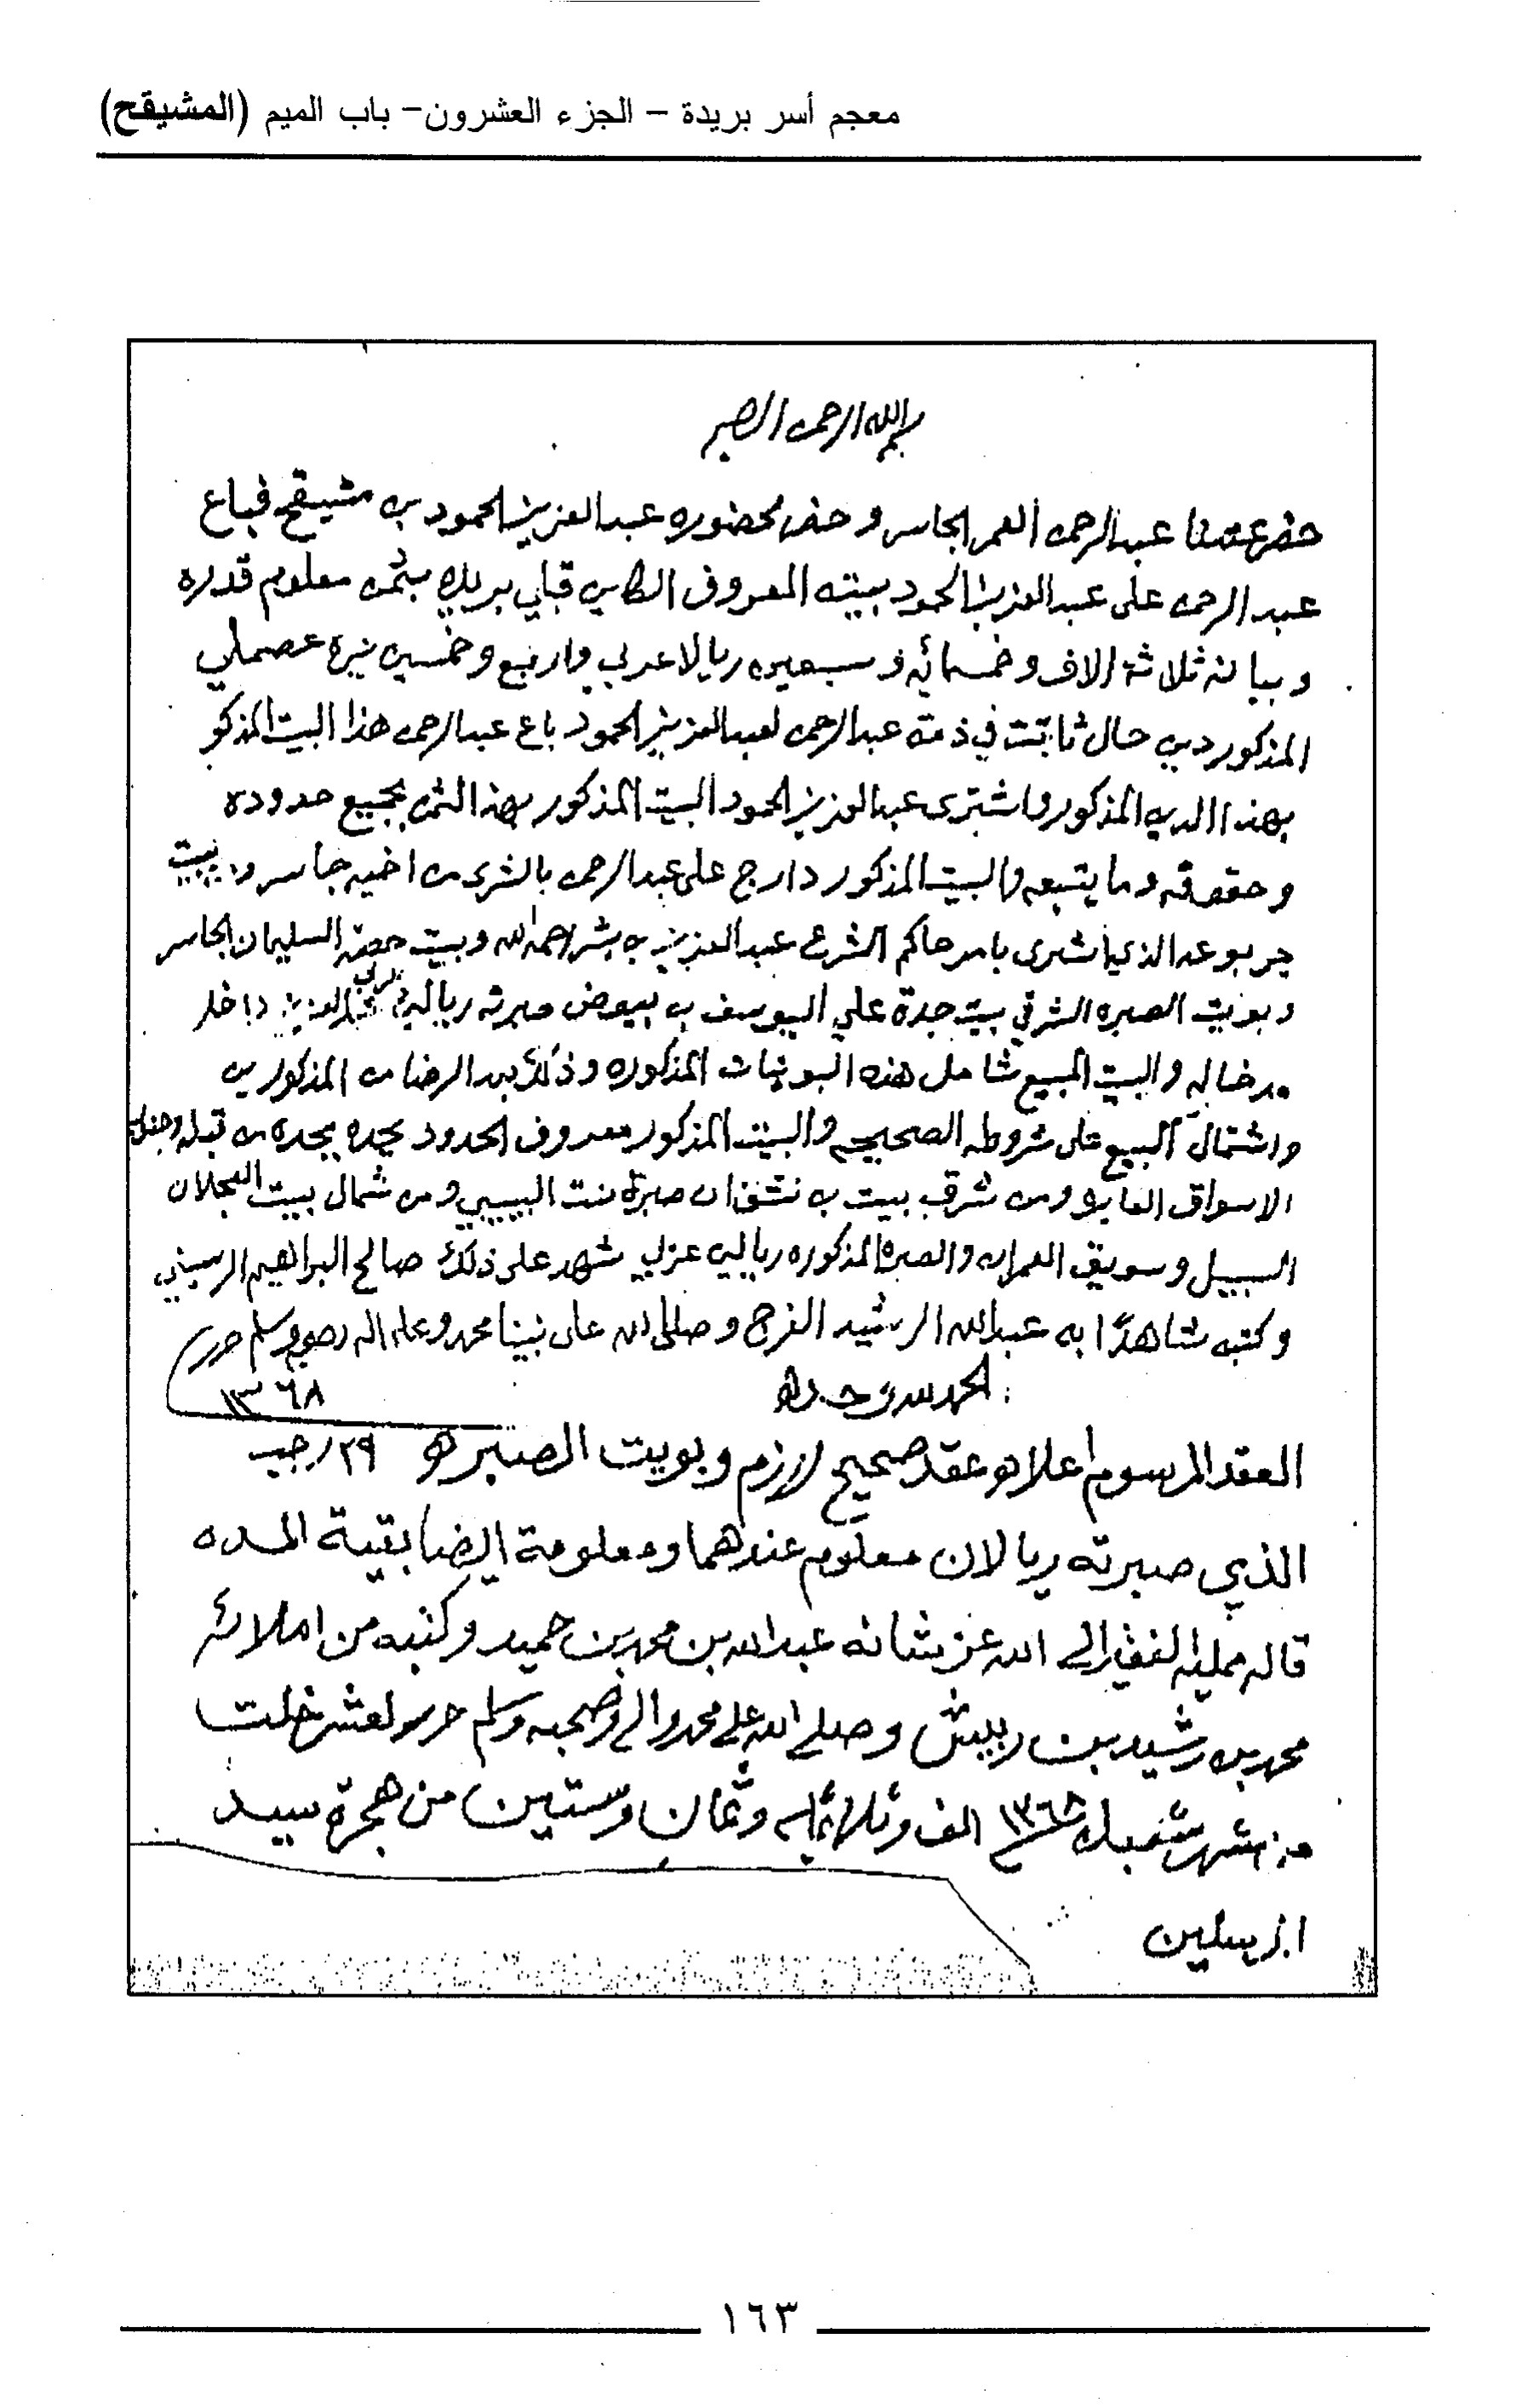 معجم أسر بريدة – الجزء العشرون– باب الميم (المشيقح)
بسم الله الرحمن الرحيم
حضر عندنا عبدالرحمن العمر الجاسر وحضر لحضوره عبدالعزيز الحمود بن مشيقح فباع
عبدالرحمن على عبدالعزيز الحمود بيته المعروف الكاين قبلي بريده بثمن معلوم قدره
وبيانه ثلاثة الاف وخمسمائه وسبعين ريالا عربي واربع وخمسين نيرة عصملي
المذكور دين حال ثابتة في ذمة عبدالرحمن لعبدالعزيز الحمود باع عبدالرحمن هذا البيت المذكور
بهذا الدين المذكور واشترى عبدالعزيز الحمود البيت المذكور بهذا الثمن بجميع حدوده
وحقوقه وما يتبعه والبيت المذكور دارج على عبدالرحمن بالشرى من اخيه جاسر وبيت
جربوعه الذي اشترى بامر حاكم الشرع عبدالعزيز بن بشر رحمه الله وبيت حصة السليمان الجاسر
وبويت الصبره الشرقي بيت جدة علي اليوسف بعوض صبرته ريالين عربي داخل
والبيت المبيع شامل هذه البويتات المذكوره وذلك بعد الرضا من المذكورين
واشتمال البيع على شروطه الصحيحه والبيت المذكور معروف الحدود يحده من قبله وجنوب
الاسواق العابره ومن شرق بيت صبرة بنت ومن شمال بيت العجلان
السبيل وسويق العمارة والصبرة المذكوره ريالين عربي شهد على ذلك صالح البراهيم الرسيني
وكتبه شاهدًا به عبدالله الرشيد الفرج وصلى الله على نبينا محمد وعلى اله وصحبه وسلم حرر
١٣٦٨
الحمد لله وحده
العقد المرسوم اعلاه عقد صحيح لازم وبويت الصبره ٢٩ رجب
الذي صبرته ريالان معلوم عندهما ومعلومة ايضا بقية المده
قاله ممليه الفقير الى الله عز شانه عبدالله بن محمد بن حميد وكتبه من املائه
محمد بن رشيد بن ربيش وصلى الله على محمد واله وصحبه وسلم حرر لعشر خلت
من شهر شعبان ١٣٦٨ الف وثلاثمايه وثمان وستين من هجرة سيد
المرسلين
١٦٣